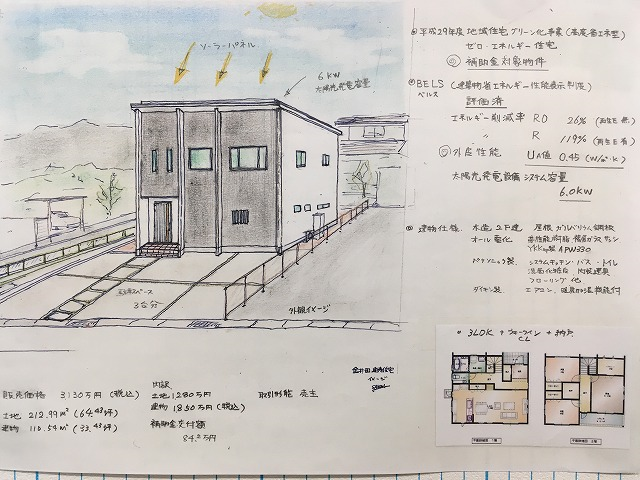 ソーラーパネル
6KW
太陽光発電容量
駐車スペース
3台分
外観イメージ
◎平成29年度 地域住宅グリーン化事業(高度省エネ型)
ゼロ・エネルギー住宅
補助金対象物件
◎BELS(建築物省エネルギー性能表示制度)
ベルス
評価済
エネルギー削減率 R0 26%(再生E 無)
〃 R 119%(再生E 有)
外皮性能 UA値 0.45(W/㎡・K)
太陽光発電設備システム容量
6.0KW
◎建物仕様 木造2F建 屋根 ガルバリウム鋼板
オール電化 高性能樹脂
YKKap製 APW330
パナソニック製 システムキッチン・バス・トイレ
洗面化粧台 内装建具
フローリング 他
ダイキン製 エアコン
3LDK + + 納戸
CL
イメージ
販売価格 3130万円(税込)
土地 212.99㎡(64.43坪)
建物 110.54㎡(33.43坪)
内訳
土地1280万円
建物1850万円(税込)
補助金交付額
84.2万円
取引形態 売主